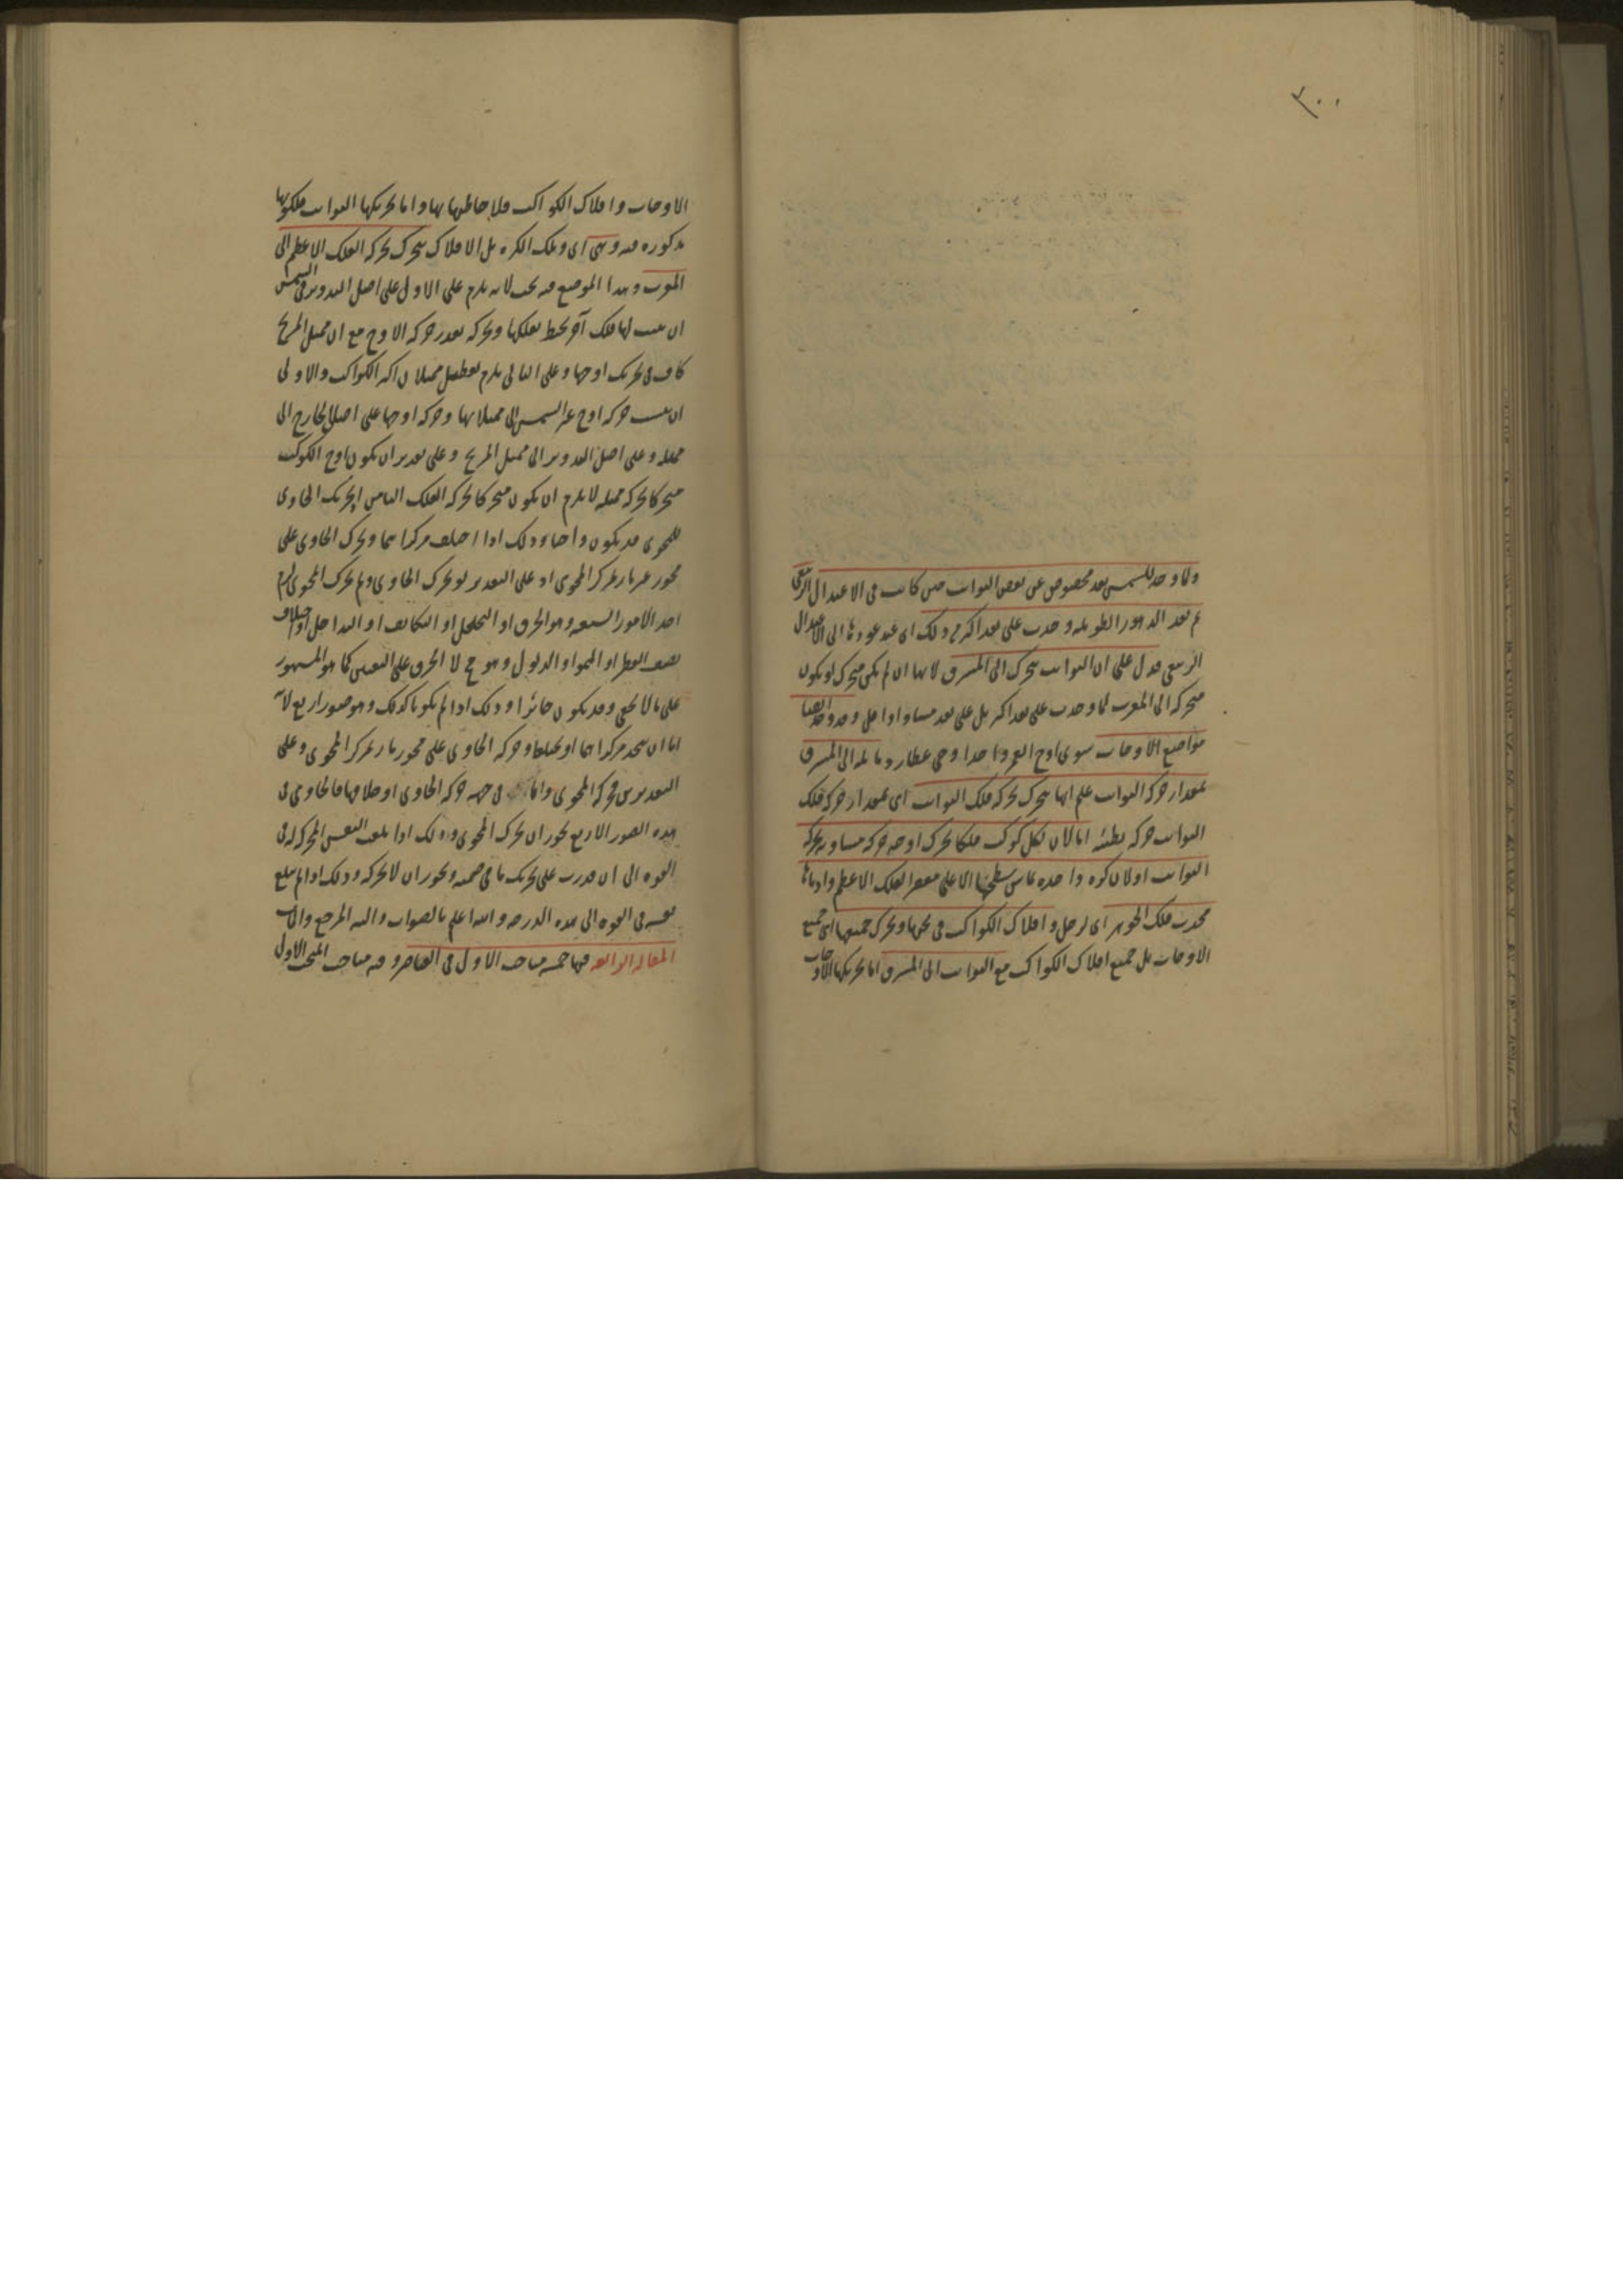 ٣٠٠
ولما وجد للشمس بعد مخصوص عن بعض الثوابت حين كانت في الاعتدال الربيعي
ثم بعد الدهور الطويلة وجدت على بعد اكثر من ذلك اي عند عودتها الى الاعتدال
الربيعي فدل على ان الثوابت تتحرك الى المشرق لانها ان لم تكن متحركة او تكون
متحركة الى المغرب لما وجدت على بعد اكثر بل على بعد مساو او اقل وقد وجد ايضا
مواضع الاوجات سوى اوج القمر واحدا وجي عطارد مائلة الى المشرق
بمقدار حركة الثوابت علم انها تتحرك بحركة فلك الثوابت اي بمقدار حركة فلك
الثوابت حركة بطيئة اما لان لكل كوكب فلكا يحرك اوجه حركة مساوية لحركة
الثوابت او لان كرة واحدة يماس سطحها الاعلى مقعر الفلك الاعظم وادناها
محدب فلك الجوزهر اي لزحل وافلاك الكواكب في ثخنها وتحرك جميعها اي جميع
الاوجات بل جميع افلاك الكواكب مع الثوابت الى المشرق اما تحريكها الاوجات
الاوجات وافلاك الكواكب فلاحاطتها بها واما تحريكها الثوابت فلكونها
مذكورة فيه وهي اي وتلك الكرة بل الافلاك تتحرك بحركة الفلك الاعظم الى
المغرب وهذا الموضع فيه بحث لانه يلزم على الاول على اصل التدوير في الشمس
ان يثبت لها فلك آخر يحيط بفلكها ويحركه بقدر حركة الاوج مع ان ممثل المريخ
كاف في تحريك اوجها وعلى الثاني يلزم تعطيل ممثلات اكثر الكواكب والاولى
ان ينسب حركة اوج غير الشمس الى ممثلاتها وحركة اوجها على اصل الخارج الى
ممثله وعلى اصل التدوير الى ممثل المريخ وعلى تقدير ان يكون اوج الكوكب
متحركا بحركة ممثله لا يلزم ان يكون متحركا بحركة الفلك الثامن اذ تحريك الحاوي
للمحوي قد يكون واجبا وذلك اذا اختلف مركزاهما وتحرك الحاوي على
محور غير مار بمركز المحوي اذ على التقدير لو تحرك الحاوي ولم يحرك المحوي لزم
احد الامور الشنيعة وهو الخرق او التخلخل او التكاثف او التداخل او اختلاف
نصف القطر او النمو او الذبول وهو ح لا الخرق على التعيين كما هو المشهور
على ما لا يخفى وقد يكون جائزا وذلك اذا لم يكونا كذلك وهو صور اربع لانه
اما ان يتحد مركزاهما او يختلفا وحركة الحاوي على محور مار بمركز المحوي وعلى
التقديرين فحركة المحوي واما في جهة حركة الحاوي او خلافها فالحاوي في
هذه الصور الاربع يجوز ان يحرك المحوي وذلك اذا بلغت النفس المحركة في
القوة الى ان قدرت على تحريك ما في ضمنه ويجوز ان لا يحركه وذلك اذا لم تبلغ
نفسه في القوة الى هذه الدرجة والله اعلم بالصواب واليه المرجع والمآب
المقالة الرابعة فيها خمسة مباحث الاول في العناصر وفيه مباحث المبحث الاول